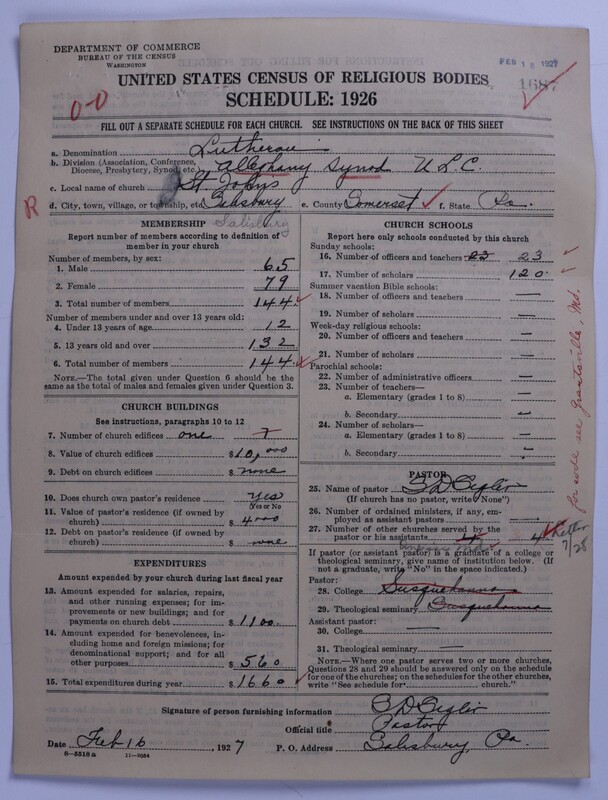 DEPARTMENT OF COMMERCE
BUREAU OF THE CENSUS
WASHINGTON
FEB 18 1927
1687
UNITED STATES CENSUS OF RELIGIOUS BODIES
SCHEDULE: 1926
0-0
FILL OUT A SEPARATE SCHEDULE FOR EACH CHURCH. SEE INSTRUCTIONS ON THE BACK OF THIS SHEET
a. Denomination Lutheran
b. Division (Association, Conference, Diocese, Presbytery, Synod, etc.) Alleghany Synod U L C.
c. Local name of church St. Johns
d. City, town, village, or township, etc. Salisbury e. County Somerset f. State Pa.
R
Salisbury
MEMBERSHIP
Report number of members according to definition of member in your church
Number of members, by sex:
1. Male 65
2. Female 79
3. Total number of members 144
Number of members under and over 13 years old:
4. Under 13 years of age 12
5. 13 years old and over 132
6. Total number of members 144
NOTE.—The total given under Question 6 should be the same as the total of males and females given under Question 3.
CHURCH BUILDINGS
See instructions, paragraphs 10 to 12
7. Number of church edifices one
8. Value of church edifices $10,000
9. Debt on church edifices $ none
10. Does church own pastor's residence Yes
(Yes or No)
11. Value of pastor's residence (if owned by church) $ 4000
12. Debt on pastor's residence (if owned by church) $ none
EXPENDITURES
Amount expended by your church during last fiscal year
13. Amount expended for salaries, repairs, and other running expenses; for improvements or new buildings; and for payments on church debt $ 1100
14. Amount expended for benevolences, including home and foreign missions; for denominational support; and for all other purposes $ 560
15. Total expenditures during year $ 1660
CHURCH SCHOOLS
Report here only schools conducted by this church
Sunday schools:
16. Number of officers and teachers 23 23
17. Number of scholars 120
Summer vacation Bible schools:
18. Number of officers and teachers —
19. Number of scholars —
Week-day religious schools:
20. Number of officers and teachers —
21. Number of scholars —
Parochial schools:
22. Number of administrative officers —
23. Number of teachers—
a. Elementary (grades 1 to 8) —
b. Secondary —
24. Number of scholars—
a. Elementary (grades 1 to 8) —
b. Secondary —
for code see Grantsville, Md.
PASTOR
25. Name of pastor
(If church has no pastor, write "None")
26. Number of ordained ministers, if any, employed as assistant pastors —
27. Number of other churches served by the pastor or his assistants 4 4
Letter 7/28
If pastor (or assistant pastor) is a graduate of a college or theological seminary, give name of institution below. (If not a graduate, write "No" in the space indicated.)
Pastor:
28. College Susquehanna
29. Theological seminary Susquehanna
Assistant pastor:
30. College —
31. Theological seminary —
NOTE.—Where one pastor serves two or more churches, Questions 28 and 29 should be answered only on the schedule for one of the churches; on the schedules for the other churches, write "See schedule for church."
Signature of person furnishing information
Official title Pastor
Date Feb 16, 1927 P. O. Address Salisbury, Pa.
8—5318a 11—9034